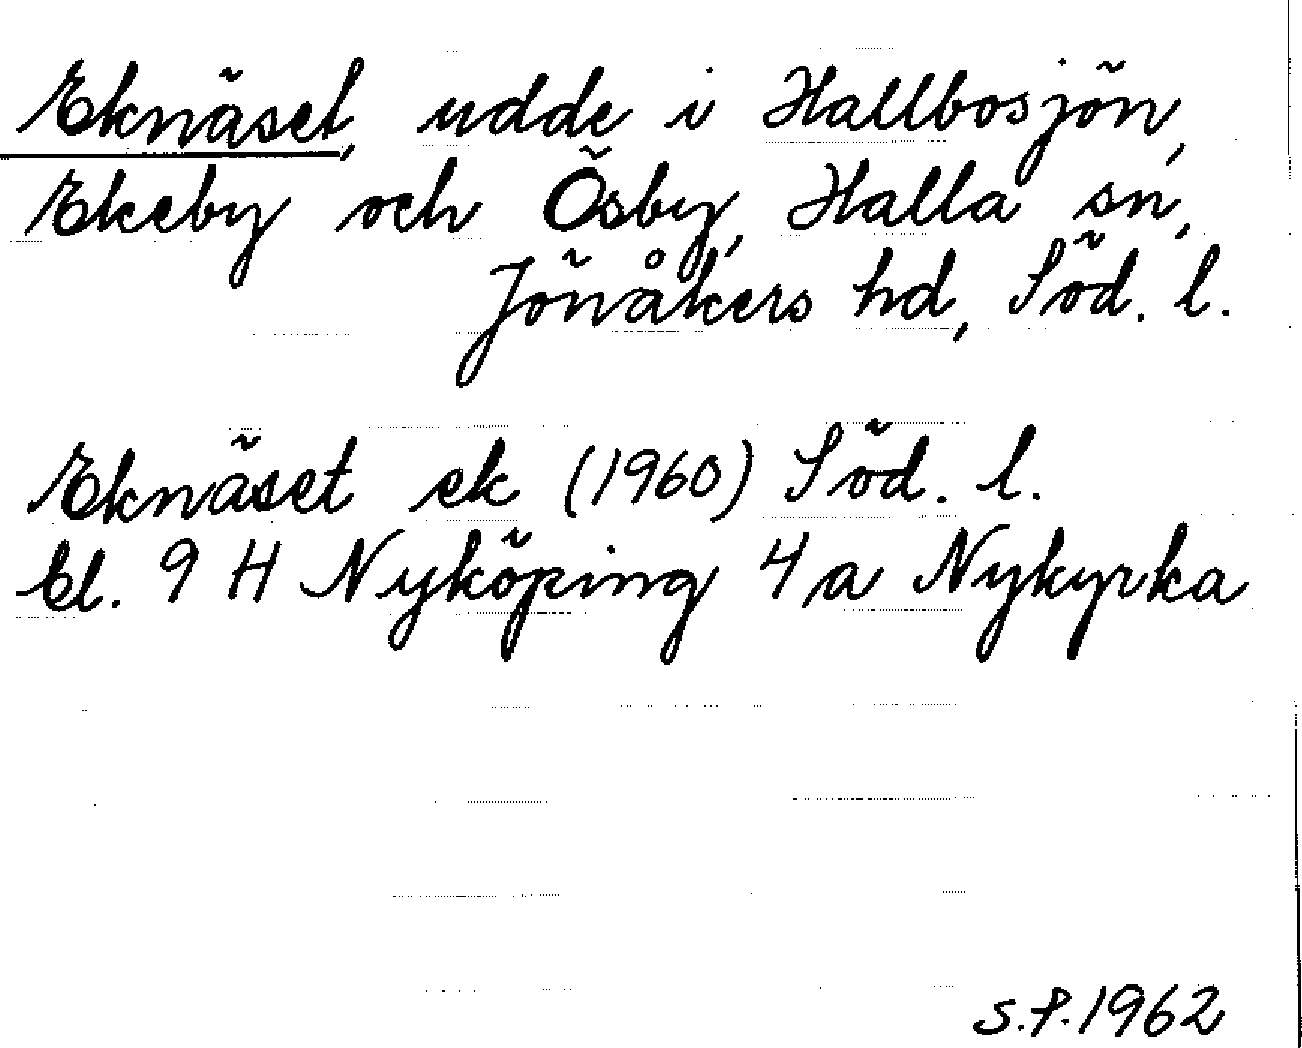 Eknäset, udde i Hallbosjön,
Ekeby och Ösby, Halla sn,
Jönåkers hd, Söd. l.
Eknäset ek (1960) Söd. l.
bl. 9 H Nyköping 4 a Nykyrka
S.P. 1962